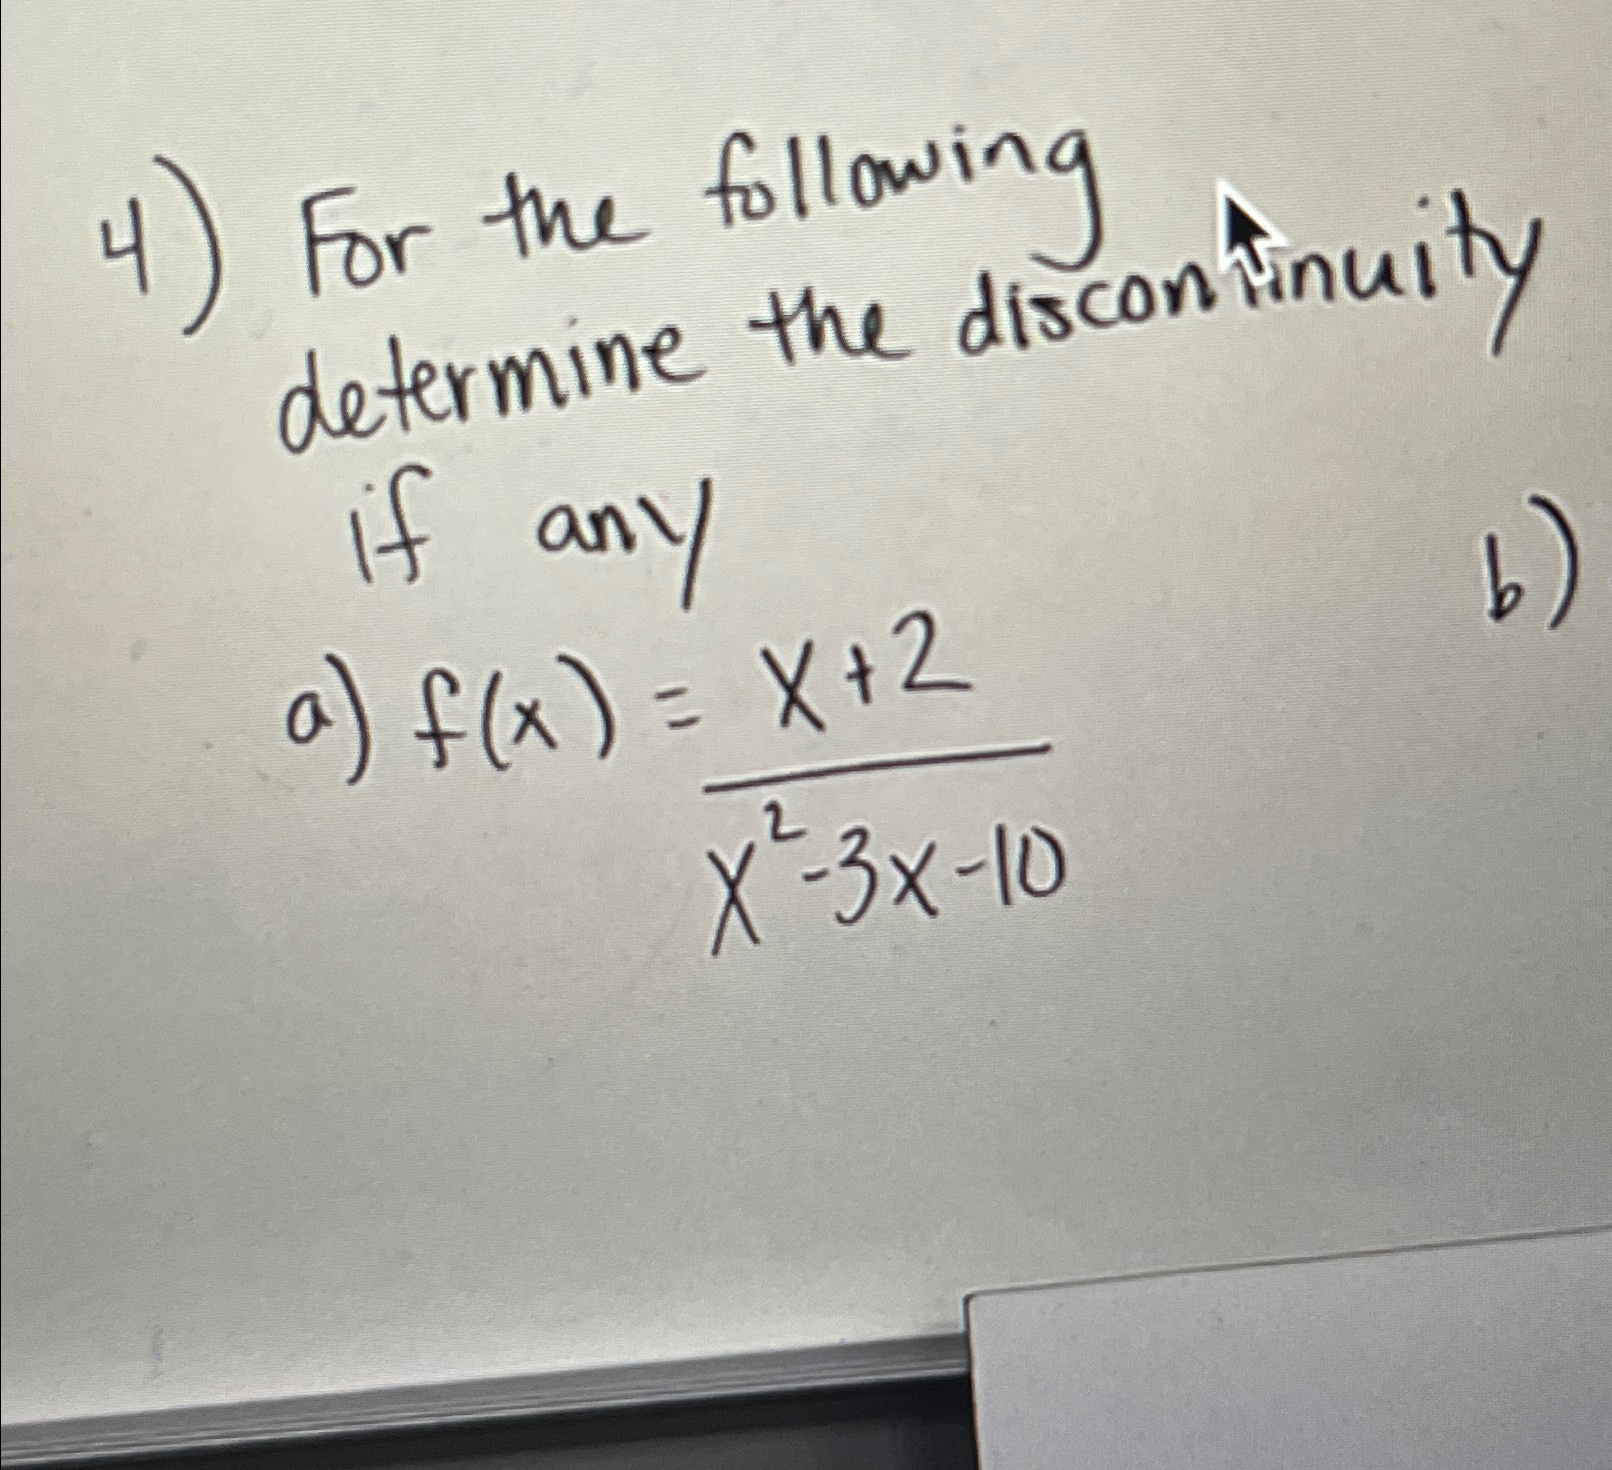 4) For the following
determine the discontinuity
if any
b)
a) f(x) = x+2
x²-3x-10